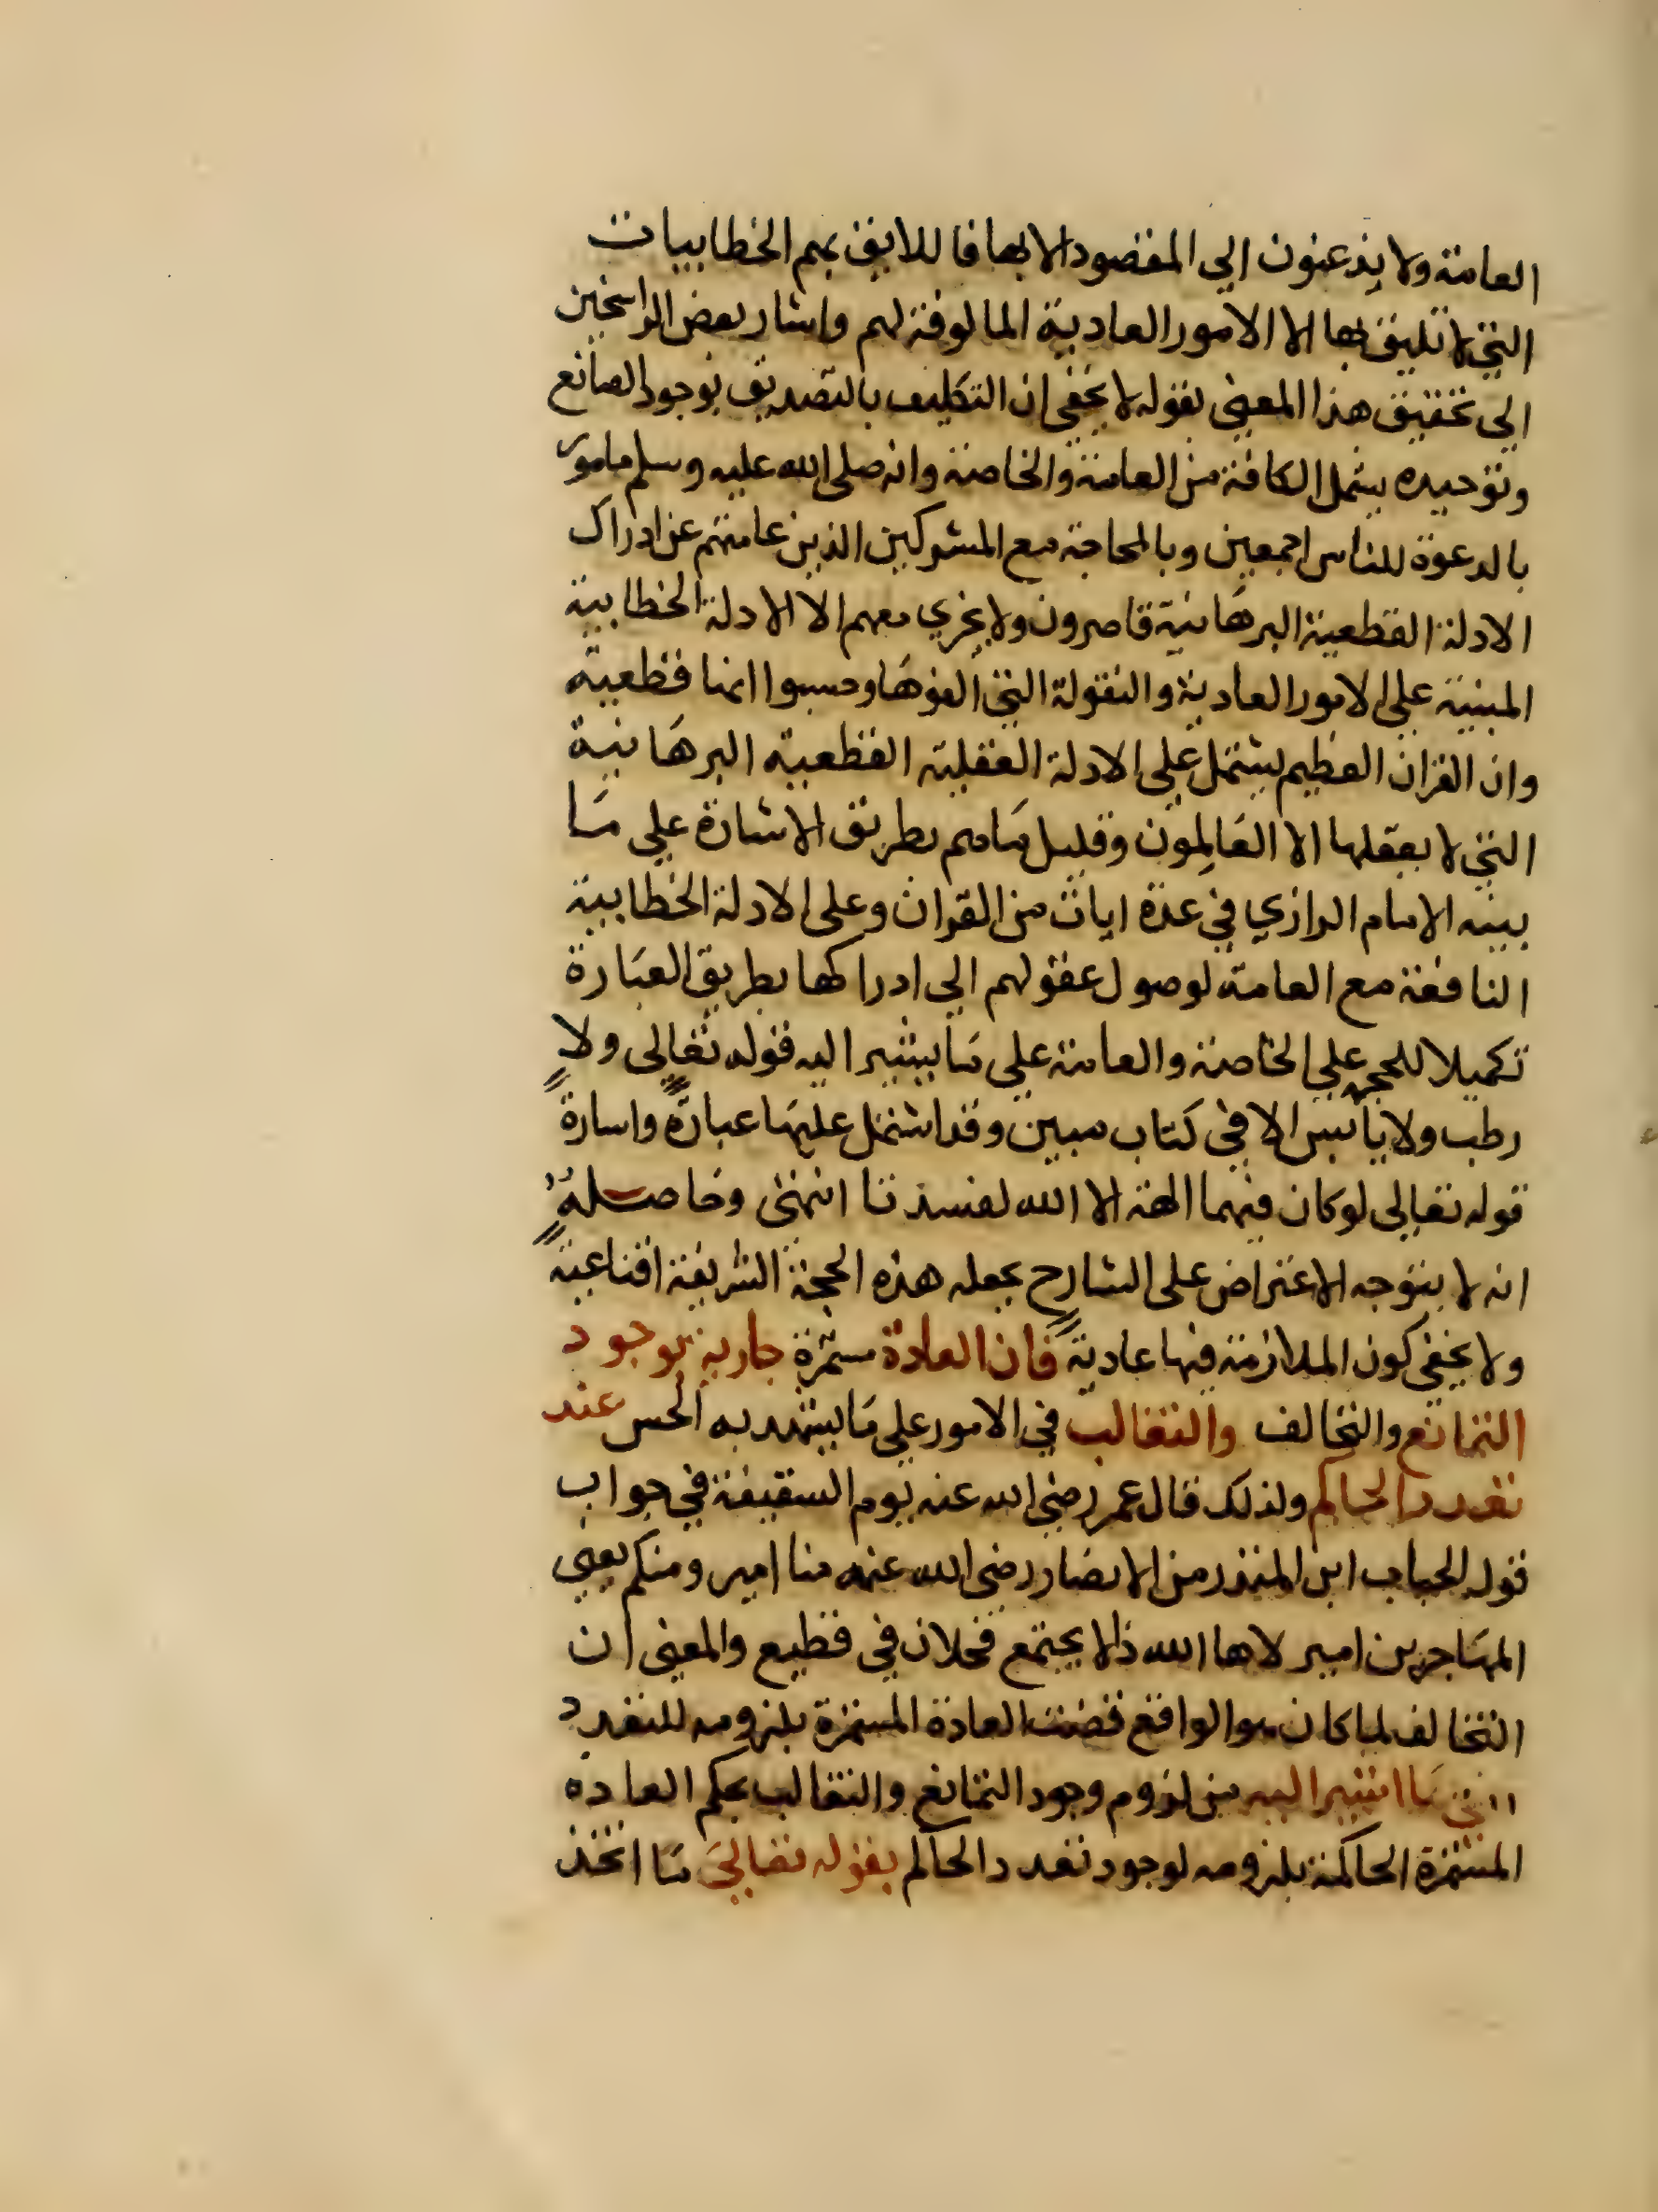 العامة ولا يذعنون الي المقصود الا بها فاللايق بهم الخطابيات
التي لا تليق بها الا الامور العادية المالوفة لهم واشار بعض الراسخين
الي تحقيق هذا المعني بقوله لا يخفي ان التكليف بالتصديق بوجود الصانع
وتوحيده يشمل الكافة من العامة والخاصة وانه صلى الله عليه وسلم مامور
بالدعوة للناس اجمعين وبالمحاجة مع المشركين الذين عامتهم عن ادراك
الادلة القطعية البرهانية قاصرون ولا يجري معهم الا الادلة الخطابية
المبنية على الامور العادية والنقولة التي الفوها وحسبوا انها قطعية
وان القران العظيم يشتمل علي الادلة العقلية القطعية البرهانية
التي لا يعقلها الا العالمون وقليل ماهم بطريق الاشارة علي ما
بينه الامام الرازي في عدة ايات من القران وعلى الادلة الخطابية
النافعة مع العامة لوصول عقولهم الي ادراكها بطريق العبارة
تكميلا للحجة علي الخاصة والعامة علي ما يشير اليه قوله تعالى ولا
رطب ولا يابس الا في كتاب مبين وقد اشتمل عليها عبارة واسارة
قوله تعالى لو كان فيهما الهة الا الله لفسدتا انتهى وحاصله
انه لا يتوجه الاعتراض على الشارح بجعله هذه الحجة الشريفة اقناعية
ولا يخفي كون الملازمة فيها عادية فان العادة مستمرة جارية بوجود
التمانع والتخالف والتغالب في الامور علي ما يشهد به الحس عند
تعدد الحاكم ولذلك قال عمر رضي الله عنه يوم السقيفة في جواب
قول الحباب ابن المنذر من الانصار رضى الله عنه منا امير ومنكم يعني
المهاجرين امير لاها الله ذا لا يجتمع فحلان في قطيع والمعنى ان
التخالف لما كان هو الواقع قضت العادة المستمرة بلزومه للتعدد
ما اشير اليه من لزوم وجود التمانع والتغالب بحكم العادة
المستمرة الحاكمة بلزومه لوجود تعدد الحاكم بقوله تعالي ما اتخذ